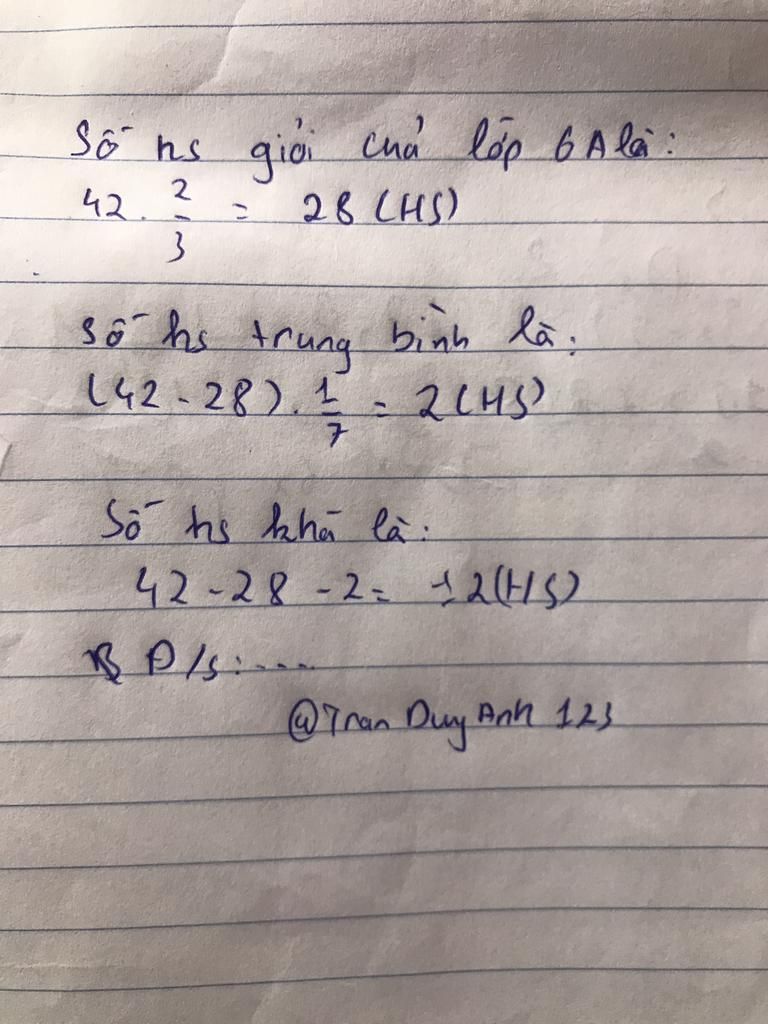 Số hs giỏi của lớp 6A là:
42 . 2/3 = 28 (HS)
Số hs trung bình là:
(42 - 28) . 1/7 = 2 (HS)
Số hs khá là:
42 - 28 - 2 = 12 (HS)
Đ/s: ....
@Tran Duy Anh 123